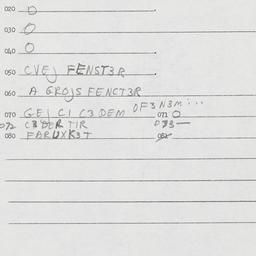 020 O
030 O
040 O
050 CVEJ FENST3R
060 A GROJS FENCT3R
070 GEJ CI C3 DEM OF3N3M... 071 O
072 C3 DER TIR 073 —
080 FARUXK3T